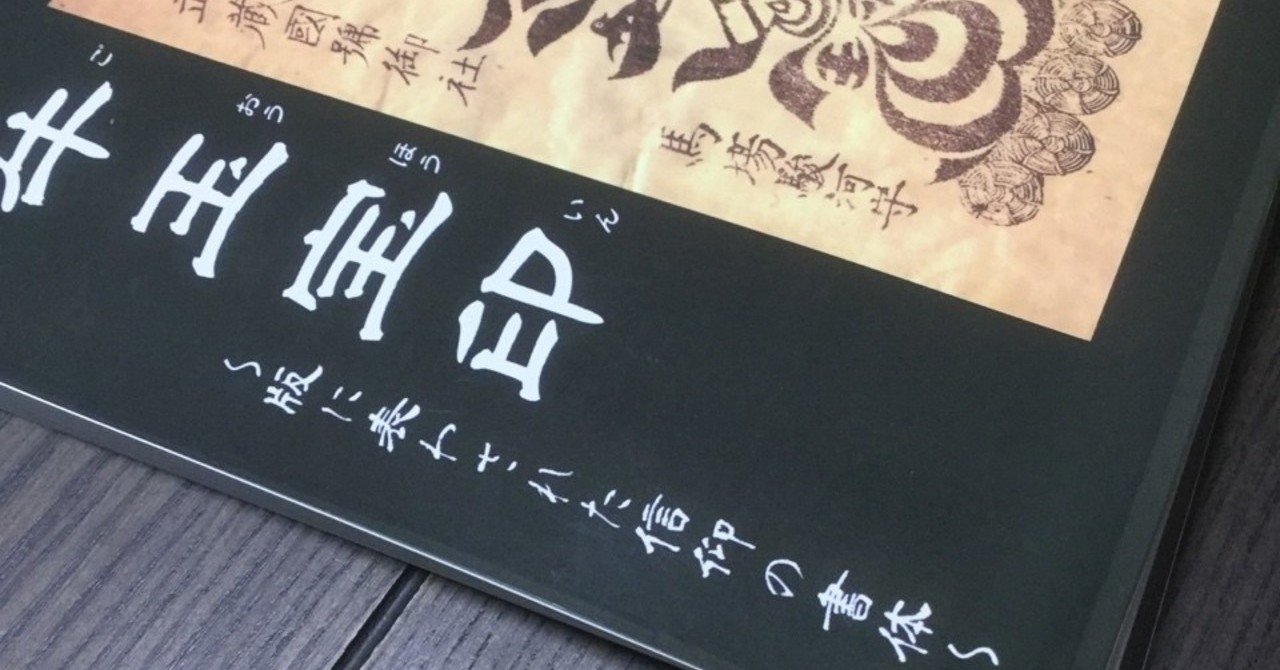 藏國號御社
馬場駿河守
ご おう ほう いん
牛玉宝印
〜版に表わされた信仰の書体〜